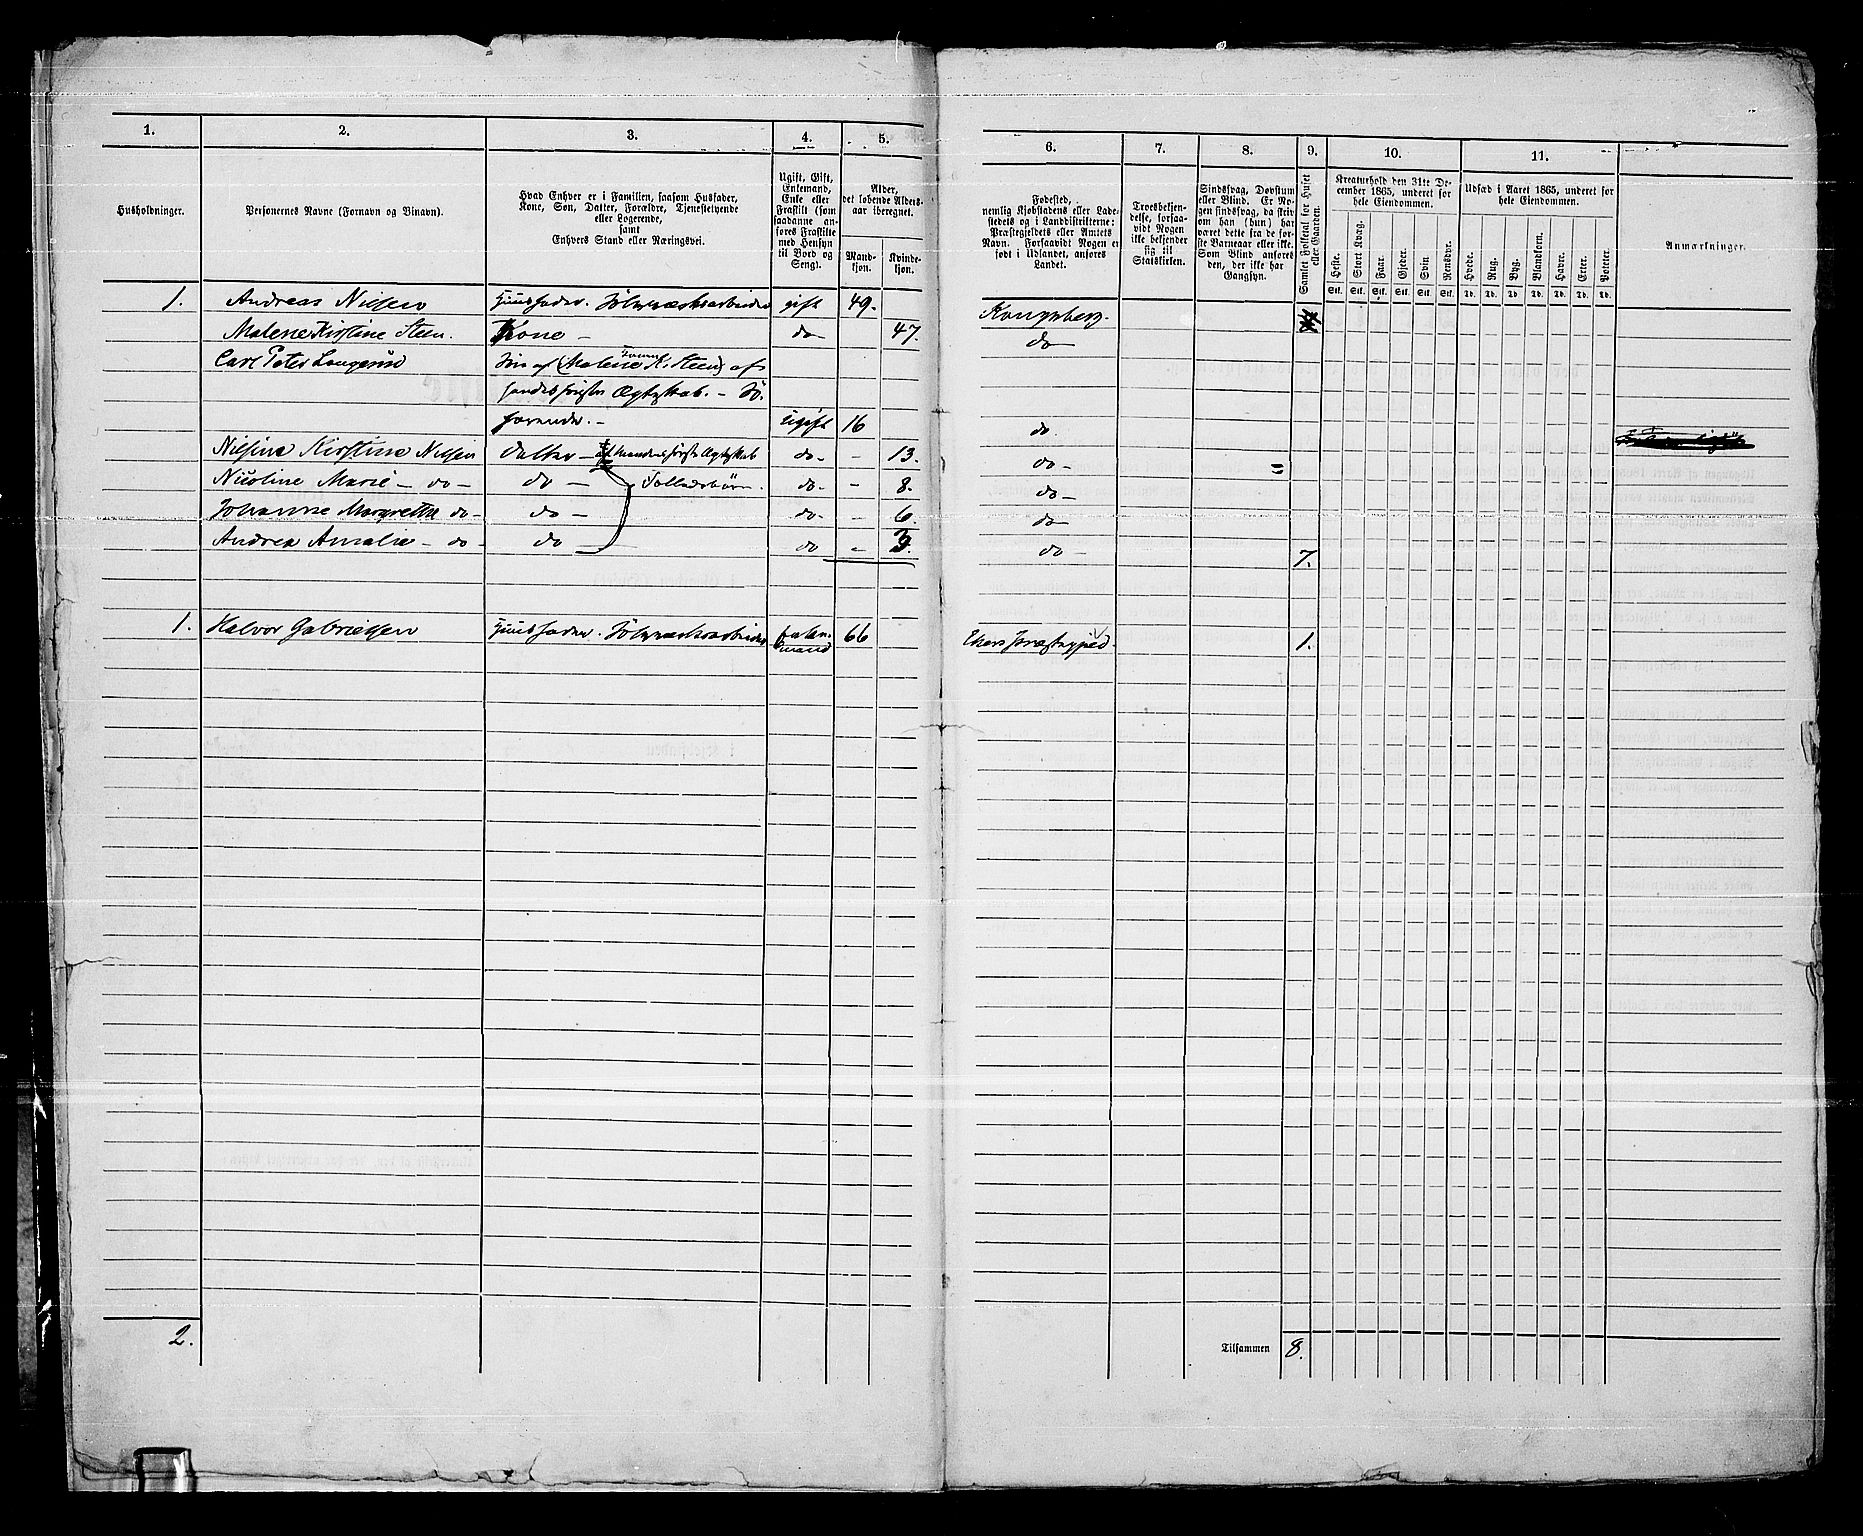 1. 2. 3. 4. 5. 6. 7. 8. 9. 10. 11.
Husholdninger.
Personernes Navne (Fornavn og Binavn).
Hvad Enhver er i Familien, saasom Husfader,
Kone, Søn, Datter, Forældre, Tjenestetyende
eller Logerende,
samt
Enhvers Stand eller Næringsvei.
Ugift, Gift,
Enkemand,
Enke eller
Fraskilt (som
saadanne an-
føres Fraskilte
med Hensyn
til Bord og
Seng).
Alder,
det løbende Alders-
aar iberegnet.
Mand-
kjøn.
Kvinde-
kjøn.
Fødested,
nemlig Kjøbstadens eller Lade-
stedets og i Landdistrikterne:
Præstegjeldets eller Amtets
Navn. Forsaavidt Nogen er
født i Udlandet, anføres
Landet.
Troesbekjen-
delse, forsaa-
vidt Nogen
ikke bekjender
sig til
Statskirken.
Sindssvag, Døvstum
eller Blind. Er No-
gen sindssvag, da skriv
om han (hun) har
været dette fra de før-
ste Barneaar eller ikke.
Som Blind anføres
den, der ikke har
Gangsyn.
Samlet Folketal for Huset
eller Gaarden.
Kreaturhold den 31te De-
cember 1865, underet for
hele Eiendommen.
Heste. Stort Kvæg. Faar. Gjeder. Svin. Rensdyr.
Stk. Stk. Stk. Stk. Stk. Stk.
Udsæd i Aaret 1865, underet for
hele Eiendommen.
Hvede. Rug. Byg. Blandkorn. Havre. Erter. Poteter.
Td. Td. Td. Td. Td. Td. Td.
Anmærkninger.
1. Andreas Nilsen Huusfader. Sølvværksarbeider gift 49. Kongsberg.
Malene Kirstine Steen. Kone - do 47. do
Carl Peter Langerud Søn af (Malene K. Steen) af
hendes første Ægteskab. - Sø-
farende. - ugift 16 do.
Nilsine Kirstine Nilsen Datter - af Mandens første Ægteskab do - - 13. do -
Nicoline Marie - do - do - Tvillingbørn. do - - 8. do -
Johanne Margrethe do - do - do - - 6. do
Andrea Amalie - do - do - do - 3. do - 7.
1. Halvor Gabrielsen Huusfader. Sølvværksarbeider Enke-
mand 66 Ekers Præstegjeld. 1.
2. Tilsammen 8.